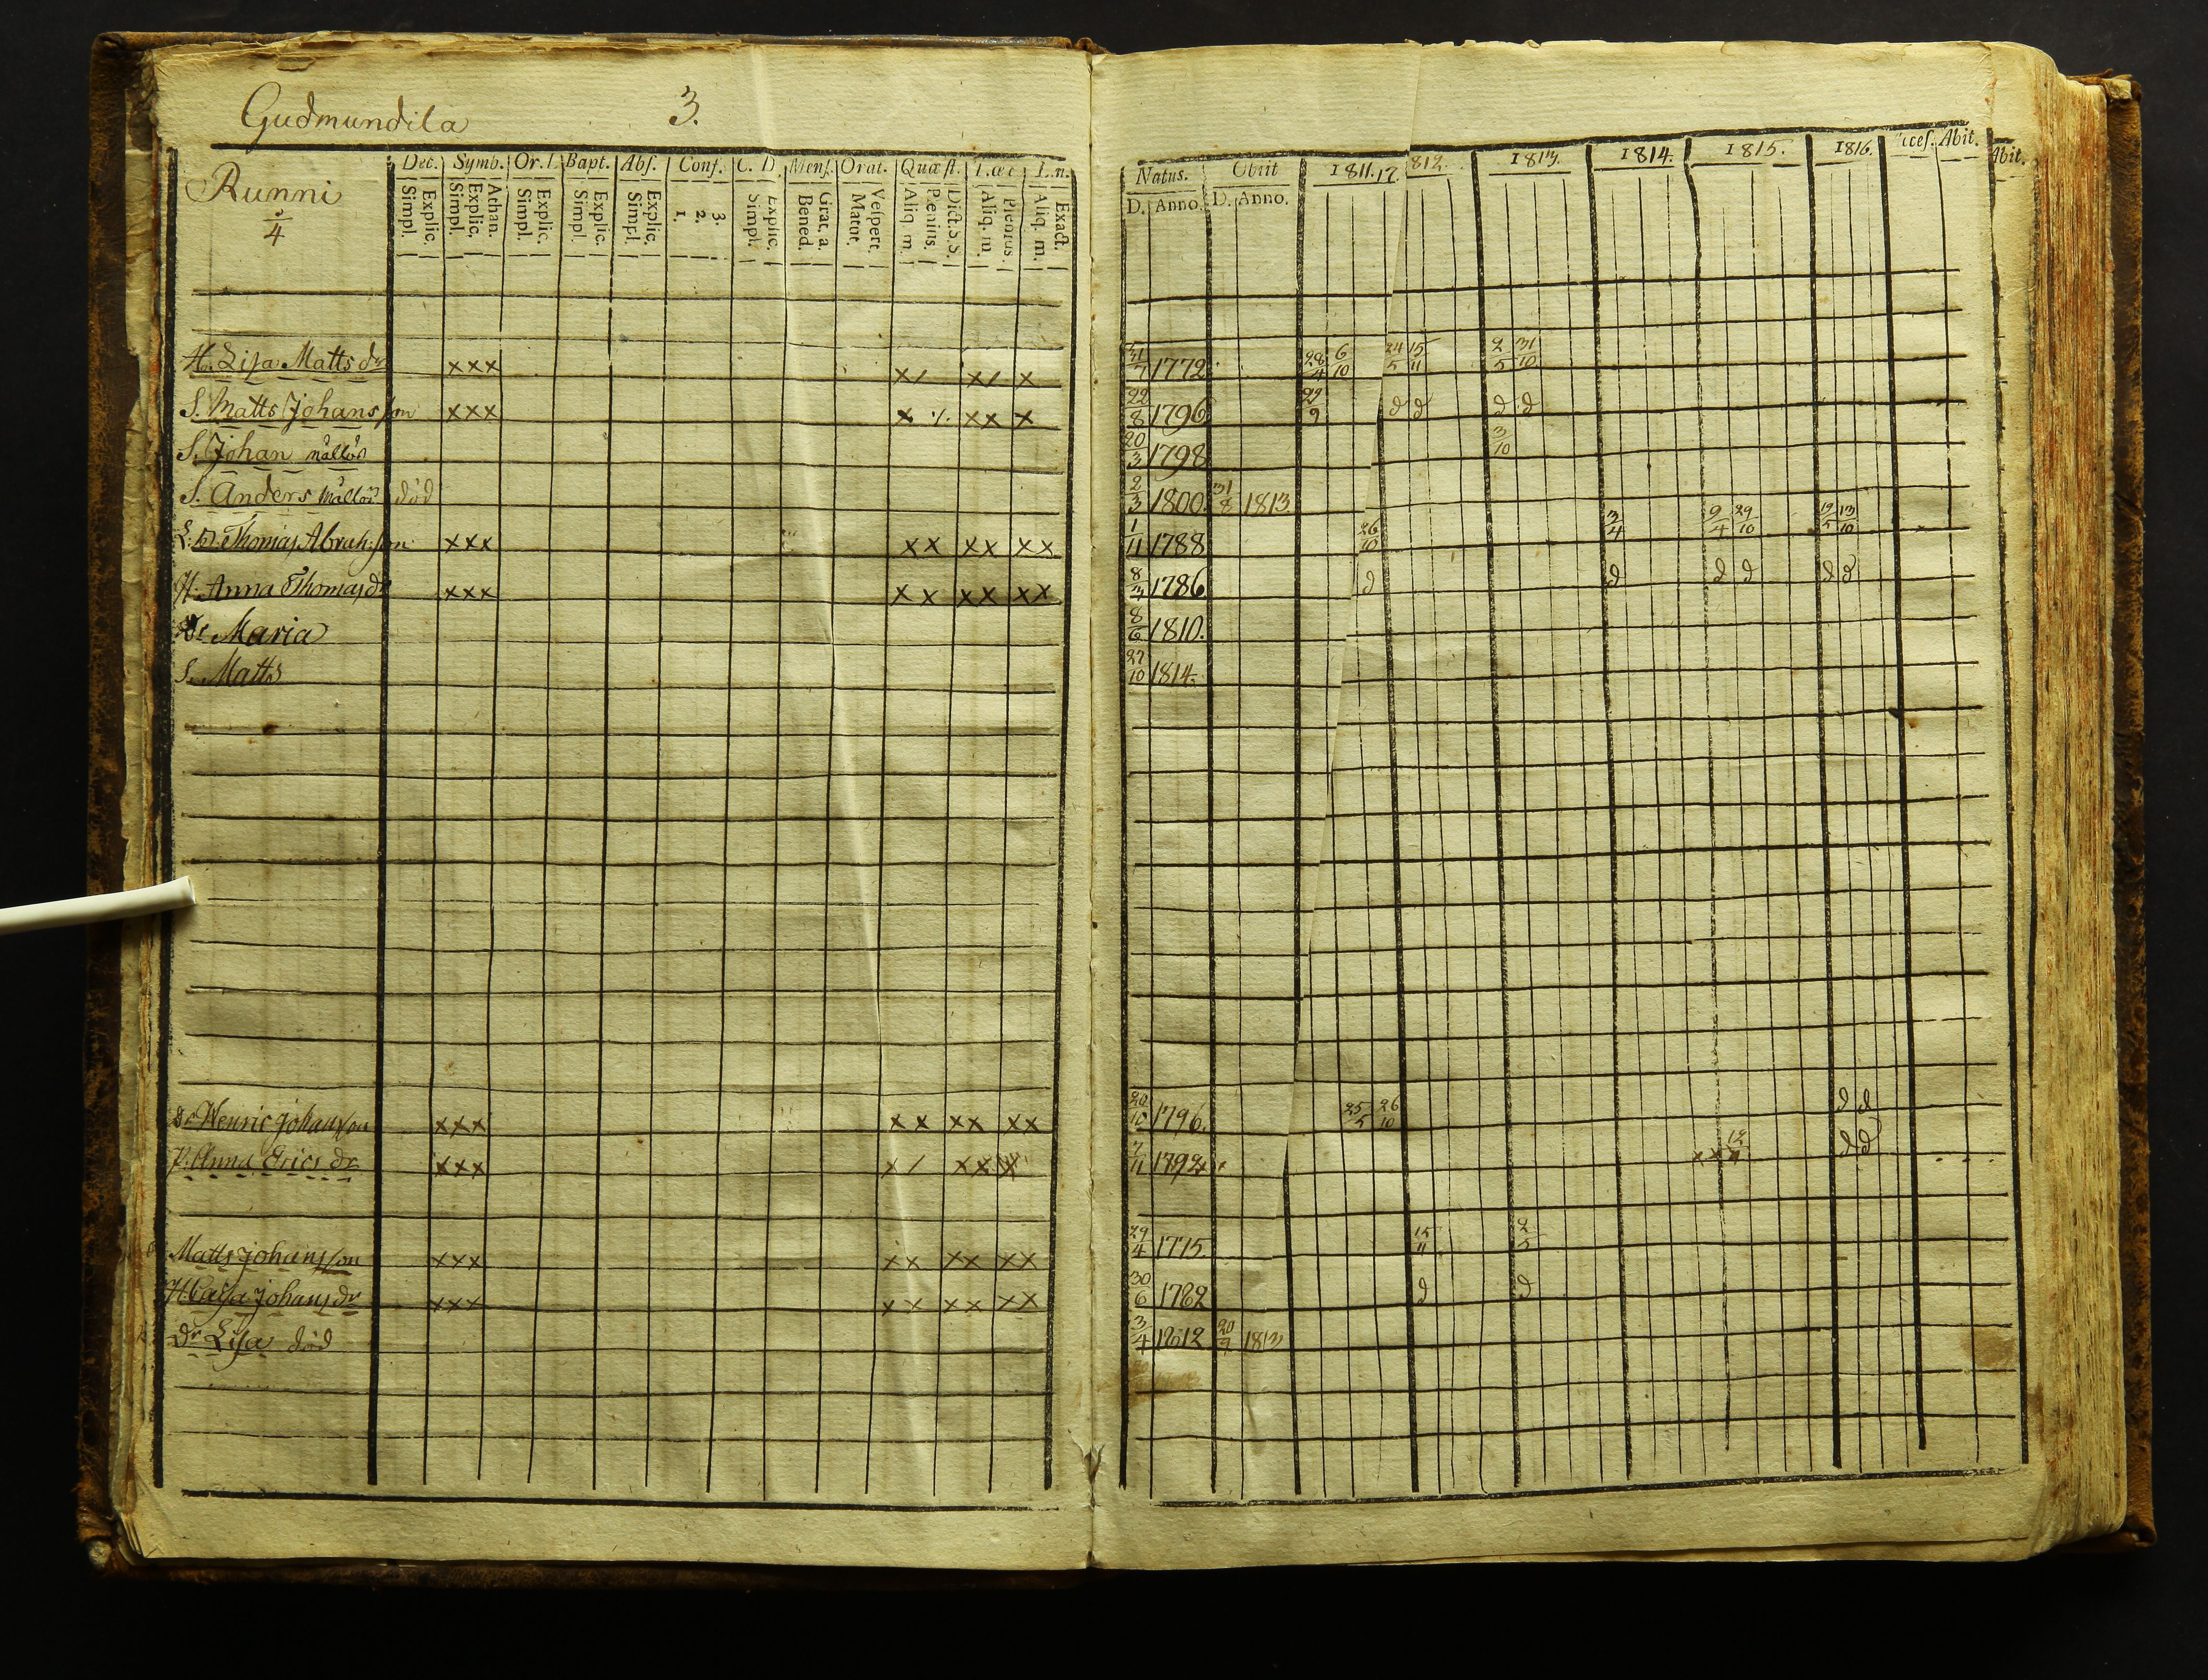 Gudmundila 3.
Runni
3/4
Dec. Symb. Or. D. Bapt. Abs. Conf. C. D. Mens. Orat. Quæst. L. œc. L. n.
Explic. Simpl. Athan. Explic. Simpl. Explic. Simpl. Explic. Simpl. Explic. Simpl. 3. 2. 1. Explic. Simpl. Grat. a. Bened. Vespert. Matut. Dict. S. S. Plenius. Aliq. m. Plenius. Aliq. m. Exact. Aliq. m.
Natus. Obiit 1811. 12 812. 1813. 1814. 1815. 1816. Acces. Abit. Abit.
D. Anno. D. Anno.
H. Lisa Matts dr xxx x/ x/ x 31/7 1772 28/4 6/10 24/5 15/11 2/5 31/10
S. Matts Johansson xxx x ·/. xx x 22/8 1796 22/9 d d d d
S. Johan mållös 20/3 1798 3/10
S. Anders mållös död 2/3 1800. 31/8 1813
Thomas Abrah.son xxx xx xx xx 1/11 1788 26/10 3/4 9/4 29/10 19/5 13/10
H. Anna Thomas dr xxx xx xx xx 1786 d d d d d d
Dr Maria 8/6 1810.
S. Matts 27/10 1814.
Dr Henric Johansson xxx xx xx xx 20/10 1796. 25/5 26/10 d d
P. Anna Erics dr xxx x/ xx x 1792 xx 12/4 d d
Matts Johansson xxx xx xx xx 29/4 1775. 15/11 2/5
H. Caisa Johans dr xxx xx xx xx 30/6 1782 d d
Dr Lisa död 3/4 1812 1813